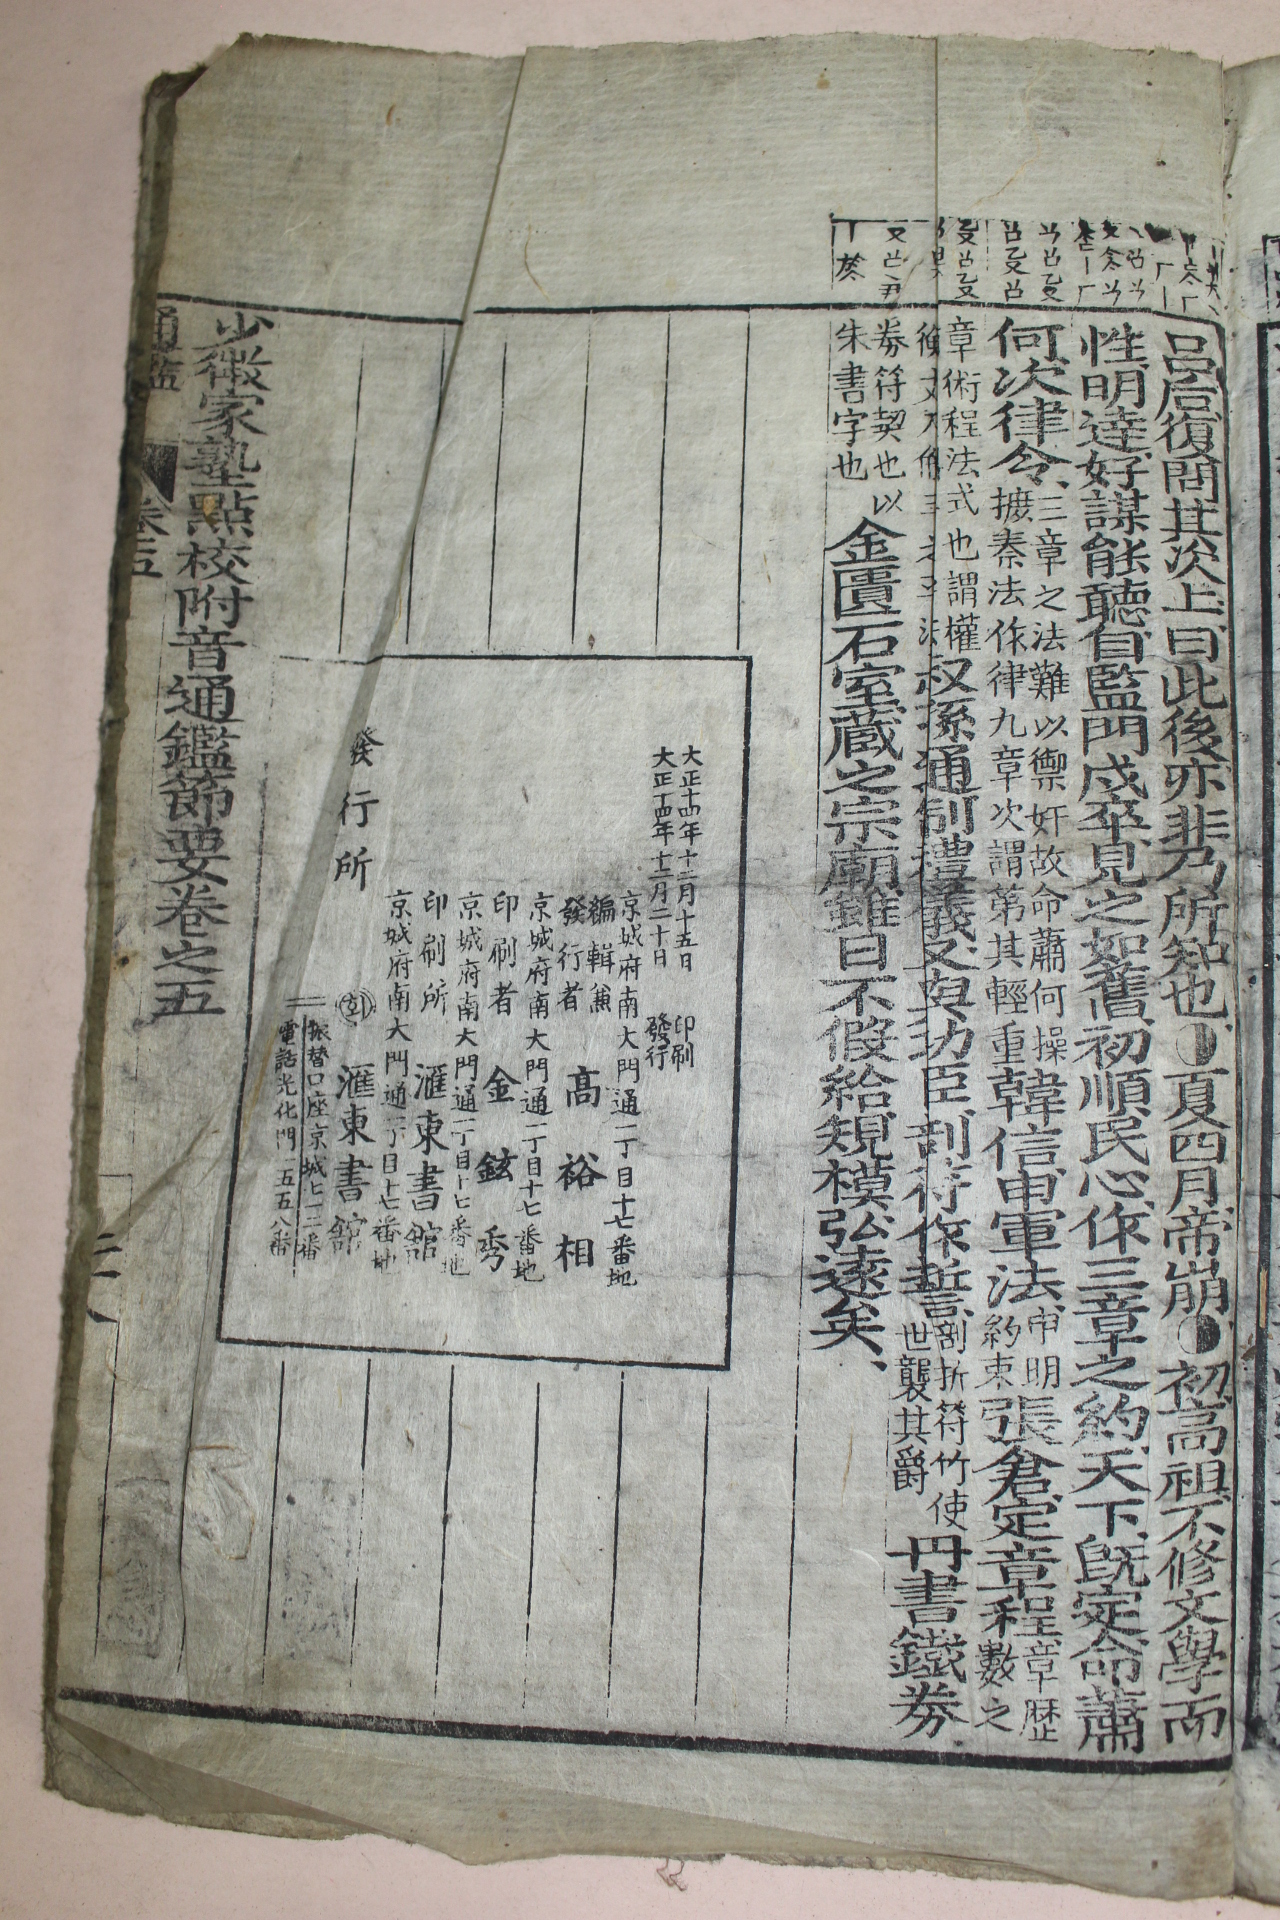 呂后復問其次上曰此後亦非乃所知也●夏四月帝崩●初高祖不修文學而
性明達好謀能聽自監門戍卒見之如舊初順民心作三章之約天下旣定命蕭
何次律令三章之法難以禦奸故命蕭何操
摭秦法作律九章次謂第其輕重韓信申軍法申明
約束張倉定章程章歷
數之
章術程法式也謂權
叔孫通制禮儀又與功臣剖符作誓剖折符竹使
世襲其爵丹書鐵券
券符契也以
朱書字也金匱石室蔵之宗廟雖日不假給規模弘遠矣
大正十四年十二月十五日 印刷
大正十四年十二月二十日 發行
京城府南大門通一丁目十七番地
編輯兼
發行者 高裕相
京城府南大門通一丁目十七番地
印刷者 金鉉秀
京城府南大門通一丁目十七番地
印刷所 滙東書舘
京城府南大門通一丁目十七番地
發行所 滙東書舘
振替口座京城七一二番
電話光化門一五五八番
少微家塾點校附音通鑑節要卷之五
通鑑 卷五